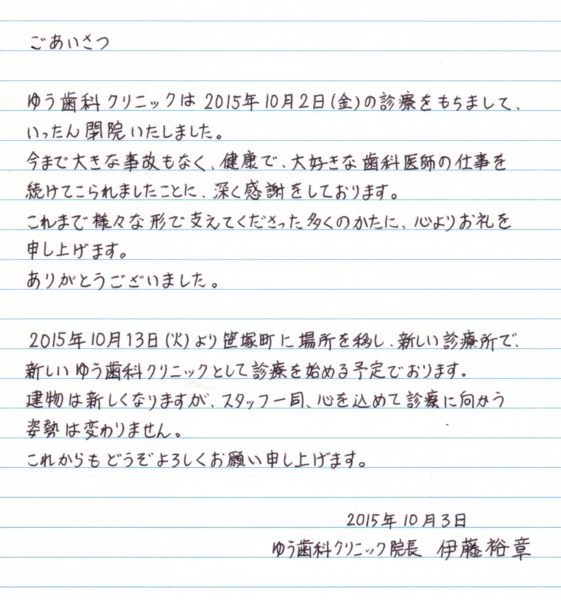 ごあいさつ
ゆう歯科クリニックは2015年10月2日(金)の診療をもちまして、
いったん閉院いたしました。
今まで大きな事故もなく、健康で、大好きな歯科医師の仕事を
続けてこられましたことに、深く感謝をしております。
これまで様々な形で支えてくださった多くのかたに、心よりお礼を
申し上げます。
ありがとうございました。
2015年10月13日(火)より笹塚町に場所を移し、新しい診療所で、
新しいゆう歯科クリニックとして診療を始める予定でおります。
建物は新しくなりますが、スタッフ一同、心を込めて診療に向かう
姿勢は変わりません。
これからもどうぞよろしくお願い申し上げます。
2015年10月3日
ゆう歯科クリニック院長 伊藤裕章